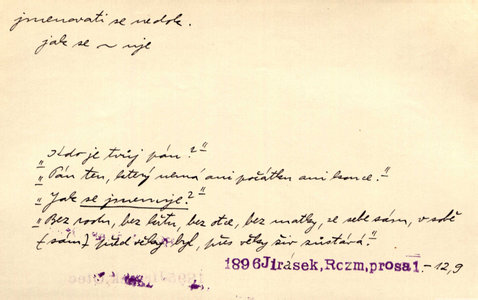 jmenovati se nedok.
jak se ~ uje
„Kdo je tvůj pán?“
„Pán ten, který nemá ani počátku ani konce.“
„Jak se jmenuje?“
„Bez rodu, bez křtu, bez otce, bez matky, ze sebe sám, v sobě
(sám) před věky byl, přes věky živ zůstává.“
1896 Jirásek, Rozm, prosa1 - 12,9